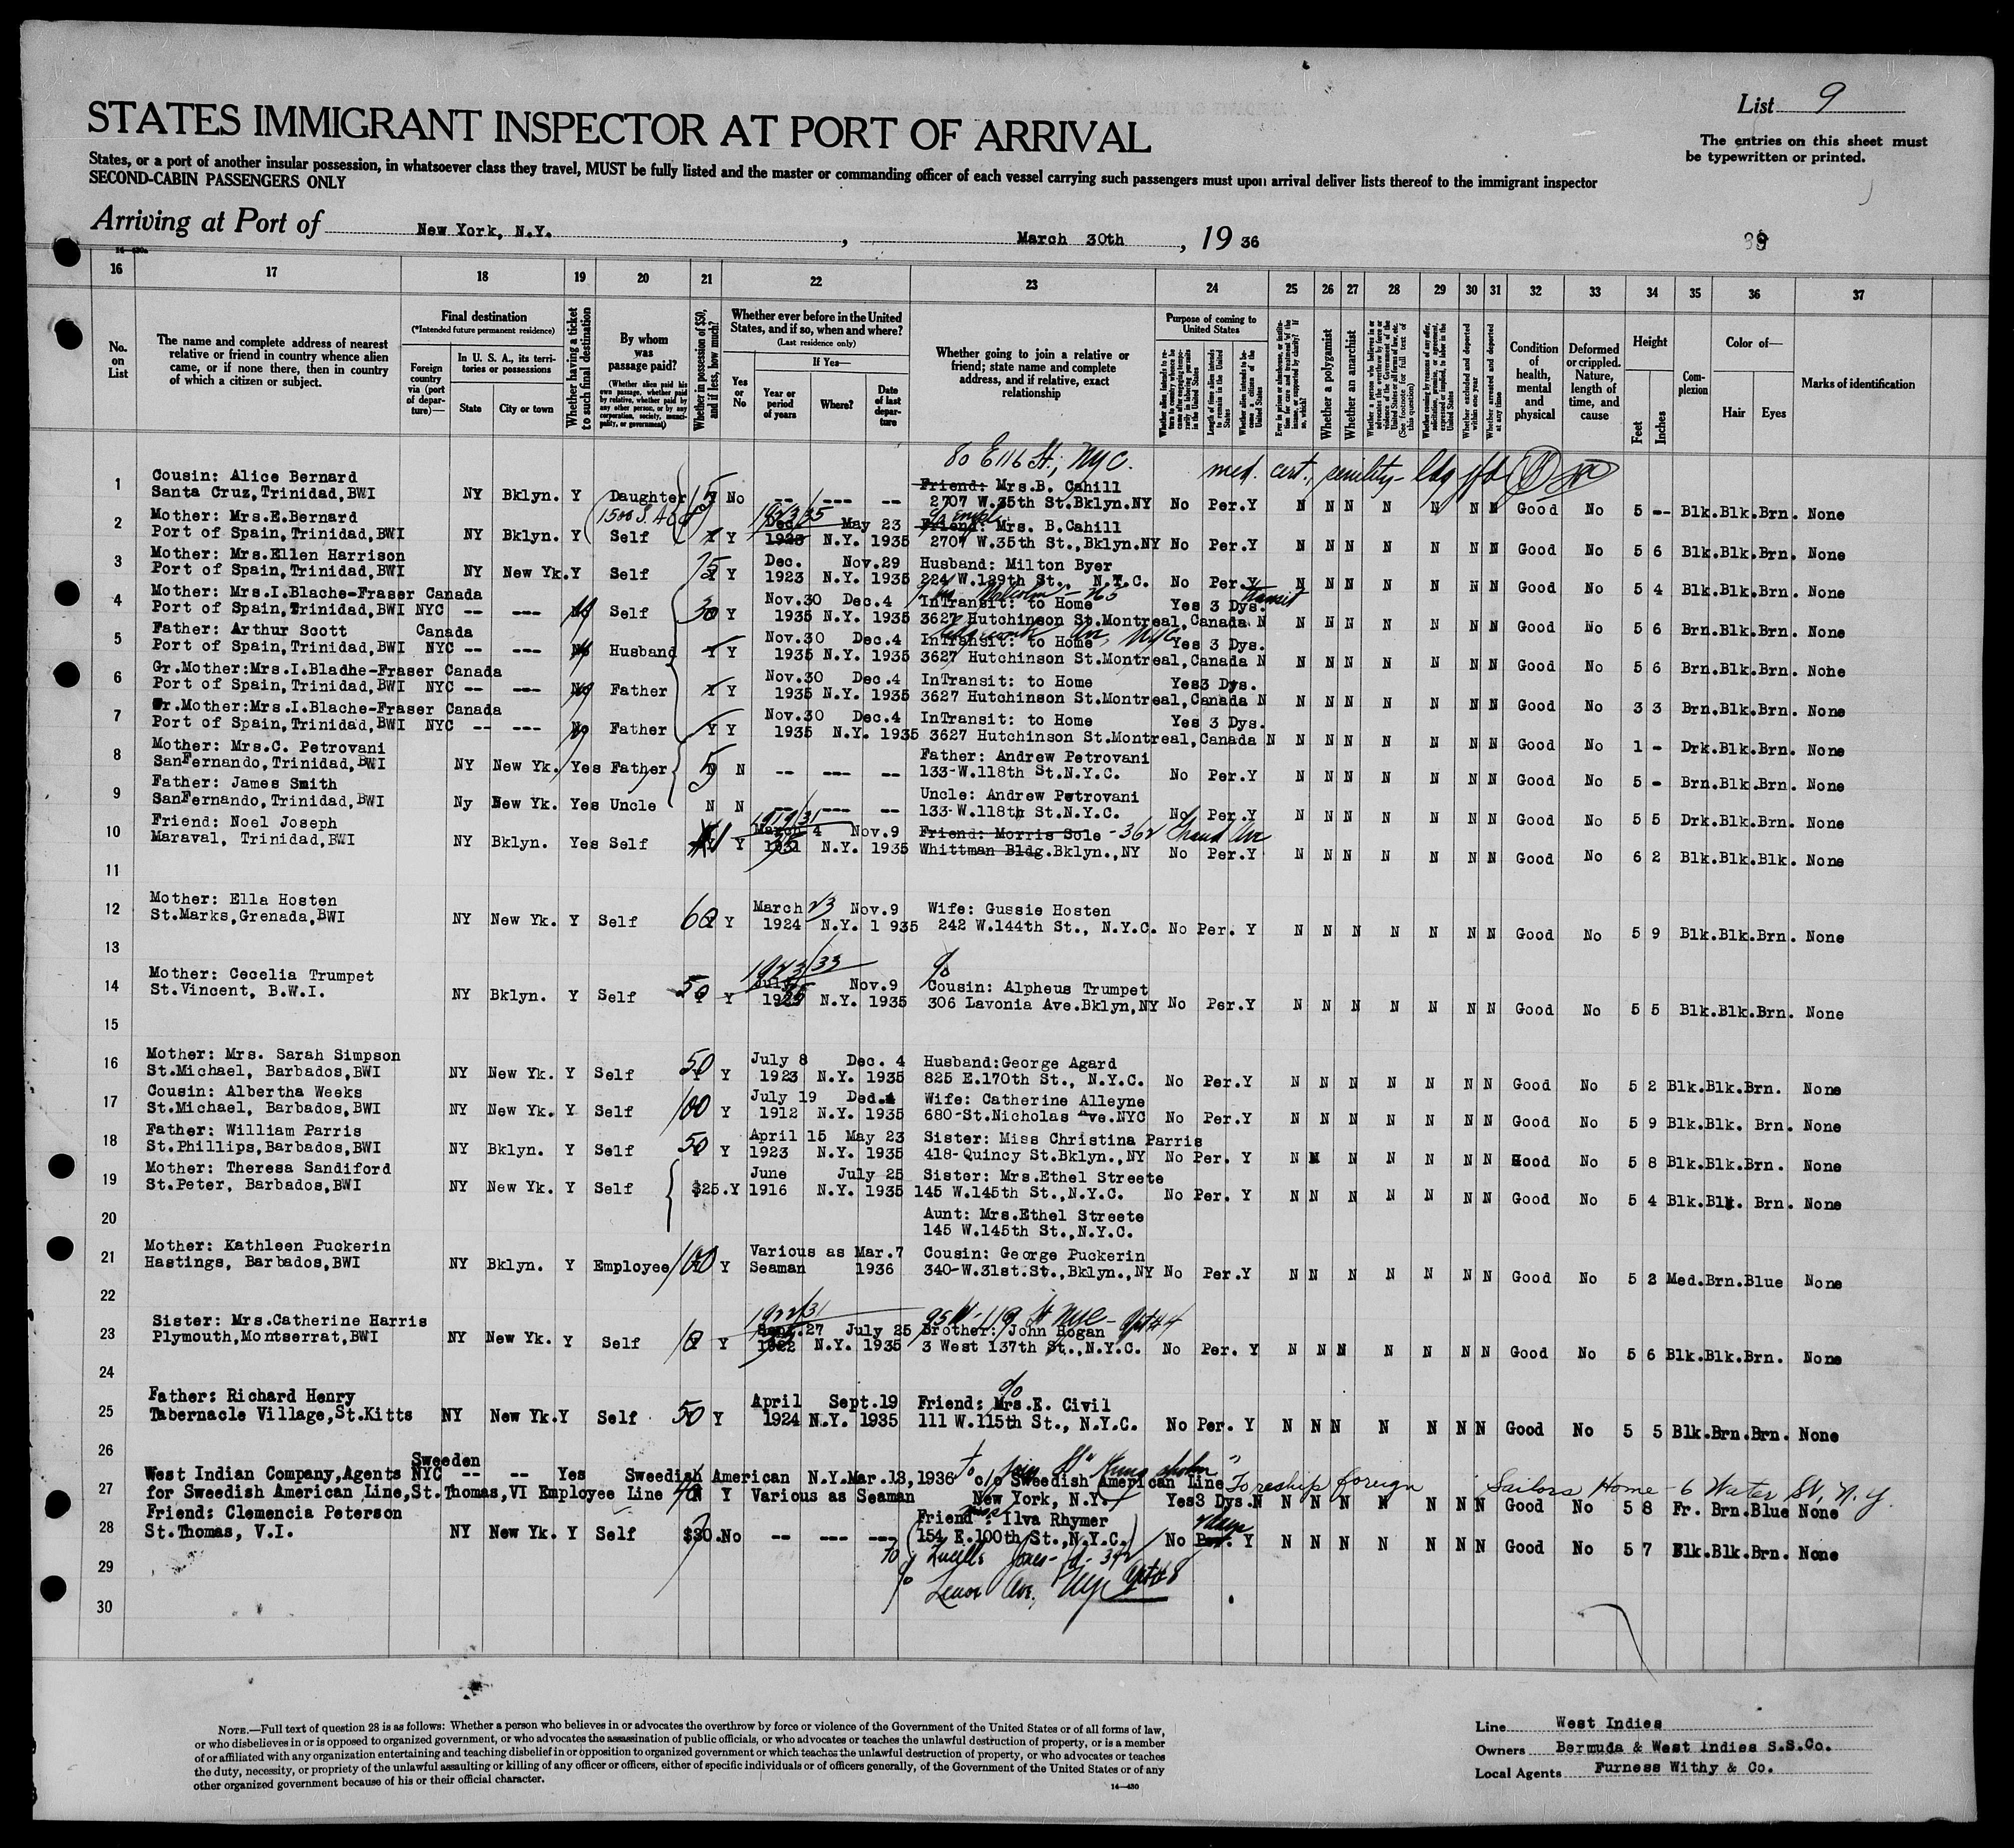 List 9
STATES IMMIGRANT INSPECTOR AT PORT OF ARRIVAL
The entries on this sheet must
be typewritten or printed.
States, or a port of another insular possession, in whatsoever class they travel, MUST be fully listed and the master or commanding officer of each vessel carrying such passengers must upon arrival deliver lists thereof to the immigrant inspector
SECOND-CABIN PASSENGERS ONLY
Arriving at Port of New York, N.Y. , March 30th , 19 36
16 17 18 19 20 21 22 23 24 25 26 27 28 29 30 31 32 33 34 35 36 37
No. on List
The name and complete address of nearest relative or friend in country whence alien came, or if none there, then in country of which a citizen or subject.
Final destination
(*Intended future permanent residence)
Foreign country via (port of departure)—
In U. S. A., its territories or possessions
State City or town
Whether having a ticket to such final destination
By whom was passage paid?
(Whether alien paid his own passage, whether paid by relative, whether paid by any other person, or by any corporation, society, municipality, or government)
Whether in possession of $50, and if less, how much?
Whether ever before in the United States, and if so, when and where?
(Last residence only)
Yes or No
If Yes—
Year or period of years Where? Date of last departure
Whether going to join a relative or friend; state name and complete address, and if relative, exact relationship
Purpose of coming to United States
Length of time alien intends to remain in the United States
Whether alien intends to become a citizen of the United States
Whether a polygamist
Whether an anarchist
(See footnote for full text of this question)
Whether excluded and deported within one year
Whether arrested and deported at any time
Condition of health, mental and physical
Deformed or crippled. Nature, length of time, and cause
Height
Feet Inches
Complexion
Color of—
Hair Eyes
Marks of identification
80 E 116 St, NYC. med. cert., senility
1 Cousin: Alice Bernard Friend: Mrs.B. Cahill
Santa Cruz,Trinidad,BWI NY Bklyn. Y Daughter No -- --- -- 2707 W.35th St.Bklyn.NY No Per.Y N N N N N N N Good No 5 -- Blk.Blk.Brn. None
2 Mother: Mrs.E.Bernard Dec. May 23 Friend: Mrs. B.Cahill
Port of Spain,Trinidad,BWI NY Bklyn. Y Self Y Y 1923 N.Y. 1935 2707 W.35th St.,Bklyn.NY No Per.Y N N N N N N N Good No 5 6 Blk.Blk.Brn. None
3 Mother: Mrs.Ellen Harrison 75 Dec. Nov.29 Husband: Milton Byer
Port of Spain,Trinidad,BWI NY New Yk.Y Self Y 1923 N.Y. 1935 224 W.129th St., N.Y.C. No Per.Y N N N N N N N Good No 5 4 Blk.Blk.Brn. None
4 Mother: Mrs.I.Blache-Fraser Canada Nov.30 Dec.4 InTransit: to Home Yes 3 Dys. transit
Port of Spain,Trinidad,BWI NYC -- --- Self 30 Y 1935 N.Y. 1935 3627 Hutchinson St.Montreal,Canada N N N N N N N N Good No 5 6 Brn.Blk.Brn. None
5 Father: Arthur Scott Canada Nov.30 Dec.4 InTransit: to Home Yes 3 Dys.
Port of Spain,Trinidad,BWI NYC -- --- Husband Y Y 1935 N.Y. 1935 3627 Hutchinson St.Montreal,Canada N N N N N N N N Good No 5 6 Brn.Blk.Brn. None
6 Gr.Mother:Mrs.I.Bladhe-Fraser Canada Nov.30 Dec.4 InTransit: to Home Yes3 Dys.
Port of Spain,Trinidad,BWI NYC -- --- Father Y Y 1935 N.Y. 1935 3627 Hutchinson St.Montreal,Canada N N N N N N N N Good No 3 3 Brn.Blk.Brn. None
7 Gr.Mother:Mrs.I.Blache-Fraser Canada Nov.30 Dec.4 InTransit: to Home Yes 3 Dys.
Port of Spain,Trinidad,BWI NYC -- --- Father Y Y 1935 N.Y. 1935 3627 Hutchinson St.Montreal,Canada N N N N N N N N Good No 1 - Drk.Blk.Brn. None
8 Mother: Mrs.C. Petrovani Father: Andrew Petrovani
SanFernando,Trinidad,BWI NY New Yk. Yes Father 5 N -- --- -- 133-W.118th St.N.Y.C. No Per.Y N N N N N N N Good No 5 - Brn.Blk.Brn. None
9 Father: James Smith Uncle: Andrew Petrovani
SanFernando,Trinidad,BWI Ny New Yk. Yes Uncle N N -- --- -- 133-W.118th St.N.Y.C. No Per.Y N N N N N N N Good No 5 5 Drk.Blk.Brn. None
10 Friend: Noel Joseph 1919/31 March 4 Nov.9 Friend: Morris Sole - 362 Grand Ave
Maraval, Trinidad,BWI NY Bklyn. Yes Self Y 1931 N.Y. 1935 Whittman Bldg.Bklyn.,NY No Per.Y N N N N N N N Good No 6 2 Blk.Blk.Blk. None
11
12 Mother: Ella Hosten March 23 Nov.9 Wife: Gussie Hosten
St.Marks,Grenada,BWI NY New Yk. Y Self 60 Y 1924 N.Y. 1 935 242 W.144th St., N.Y.C. No Per. Y N N N N N N N Good No 5 9 Blk.Blk.Brn. None
13
14 Mother: Cecelia Trumpet 1923/33 July Nov.9 c/o Cousin: Alpheus Trumpet
St.Vincent, B.W.I. NY Bklyn. Y Self 50 Y N.Y. 1935 306 Lavonia Ave.Bklyn,NY No Per.Y N N N N N N N Good No 5 5 Blk.Blk.Brn. None
15
16 Mother: Mrs. Sarah Simpson July 8 Dec. 4 Husband:George Agard
St.Michael, Barbados,BWI NY New Yk. Y Self 50 Y 1923 N.Y. 1935 825 E.170th St., N.Y.C. No Per.Y N N N N N N N Good No 5 2 Blk.Blk.Brn. None
17 Cousin: Albertha Weeks July 19 Ded.4 Wife: Catherine Alleyne
St.Michael, Barbados,BWI NY New Yk. Y Self 100 Y 1912 N.Y. 1935 680-St.Nicholas Ave.NYC No Per.Y N N N N N N N Good No 5 9 Blk.Blk. Brn. None
18 Father: William Parris April 15 May 23 Sister: Miss Christina Parris
St.Phillips,Barbados,BWI NY Bklyn. Y Self 50 Y 1923 N.Y. 1935 418-Quincy St.Bklyn.,NY No Per. Y N N N N N N N Good No 5 8 Blk.Blk.Brn. None
19 Mother: Theresa Sandiford June July 25 Sister: Mrs.Ethel Streete
St.Peter, Barbados,BWI NY New Yk. Y Self $25.Y 1916 N.Y. 1935 145 W.145th St.,N.Y.C. No Per. Y N N N N N N N Good No 5 4 Blk.Blk. Brn. None
20 Aunt: Mrs.Ethel Streete
145 W.145th St.,N.Y.C.
21 Mother: Kathleen Puckerin Various as Mar.7 Cousin: George Puckerin
Hastings, Barbados,BWI NY Bklyn. Y Employee 100 Y Seaman 1936 340-W.31st.St.,Bklyn.,NY No Per.Y N N N N N N N Good No 5 Med.Brn.Blue None
22
23 Sister: Mrs.Catherine Harris 1922/31 Sept.27 July 25 95 W-119 St NYC - Apt #4 Brother: John Hogan
Plymouth,Montserrat,BWI NY New Yk. Y Self Y 1922 N.Y. 1935 3 West 137th St.,N.Y.C. No Per. Y N N N N N N N Good No 5 6 Blk.Blk.Brn. None
24
25 Father: Richard Henry April Sept.19 c/o Friend: Mrs.E. Civil
Tabernacle Village,St.Kitts NY New Yk.Y Self 50 Y 1924 N.Y. 1935 111 W.115th St., N.Y.C. No Per. Y N N N N N N N Good No 5 5 Blk.Brn.Brn. None
26
Sweeden
27 West Indian Company,Agents NYC -- -- Yes Swedish American N.Y.Mar.13,1936 c/o Swedish American Line To reship foreign Sailors Home - 6 Water St, N.Y.
for Swedish American Line,St.Thomas,VI Employee Line N Y Various as Seaman New York, N.Y. Yes3 Dys.N N N N N N N N Good No 5 8 Fr. Brn.Blue None
28 Friend: Clemencia Peterson Friend: Ilva Rhymer
St.Thomas, V.I. NY New Yk. Y Self $30.No -- --- --- 154 E.100th St.,N.Y.C. No Per. Y N N N N N N N Good No 5 7 Blk.Blk.Brn. None
29
Lenox Ave, NYC Apt #8
30
NOTE.—Full text of question 28 is as follows: Whether a person who believes in or advocates the overthrow by force or violence of the Government of the United States or of all forms of law,
or who disbelieves in or is opposed to organized government, or who advocates the assassination of public officials, or who advocates or teaches the unlawful destruction of property, or is a member
of or affiliated with any organization entertaining and teaching disbelief in or opposition to organized government or which teaches the unlawful destruction of property, or who advocates or teaches
the duty, necessity, or propriety of the unlawful assaulting or killing of any officer or officers, either of specific individuals or of officers generally, of the Government of the United States or of any
other organized government because of his or their official character.
14—430
Line West Indies
Owners Bermuda & West Indies S.S.Co.
Local Agents Furness Withy & Co.